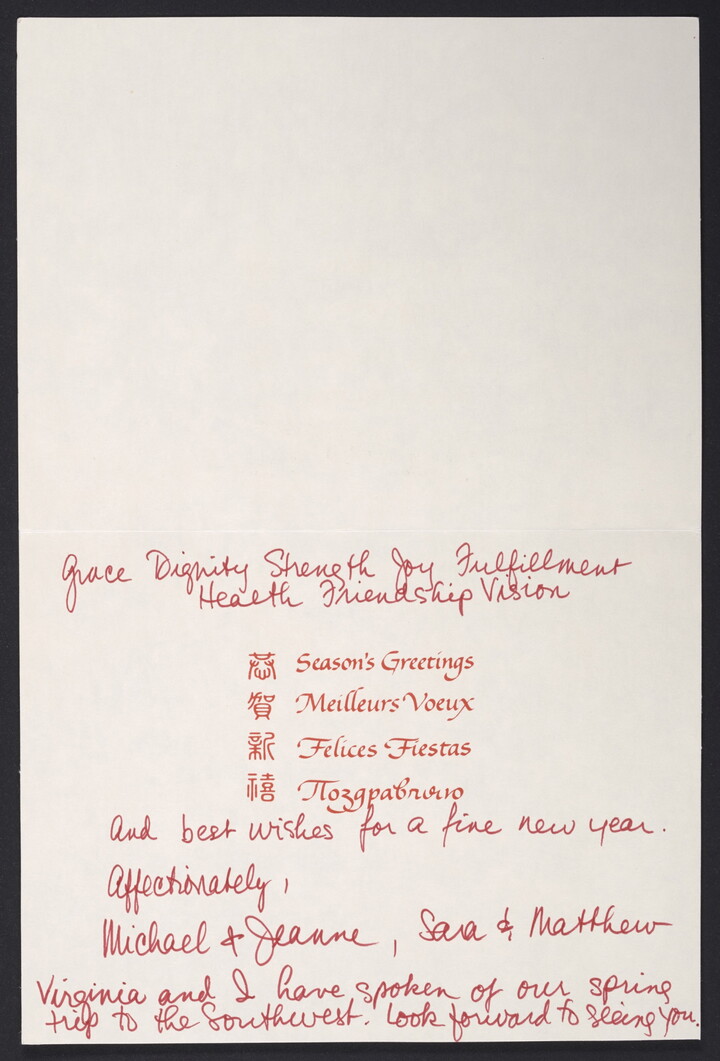 Grace Dignity Strength Joy Fulfillment
Health Friendship Vision
恭 Season's Greetings
賀 Meilleurs Voeux
新 Felices Fiestas
禧 Поздравляю
And best wishes for a fine new year.
Affectionately,
Michael & Jeanne, Sara & Matthew
Virginia and I have spoken of our spring
trip to the Southwest. Look forward to seeing you.